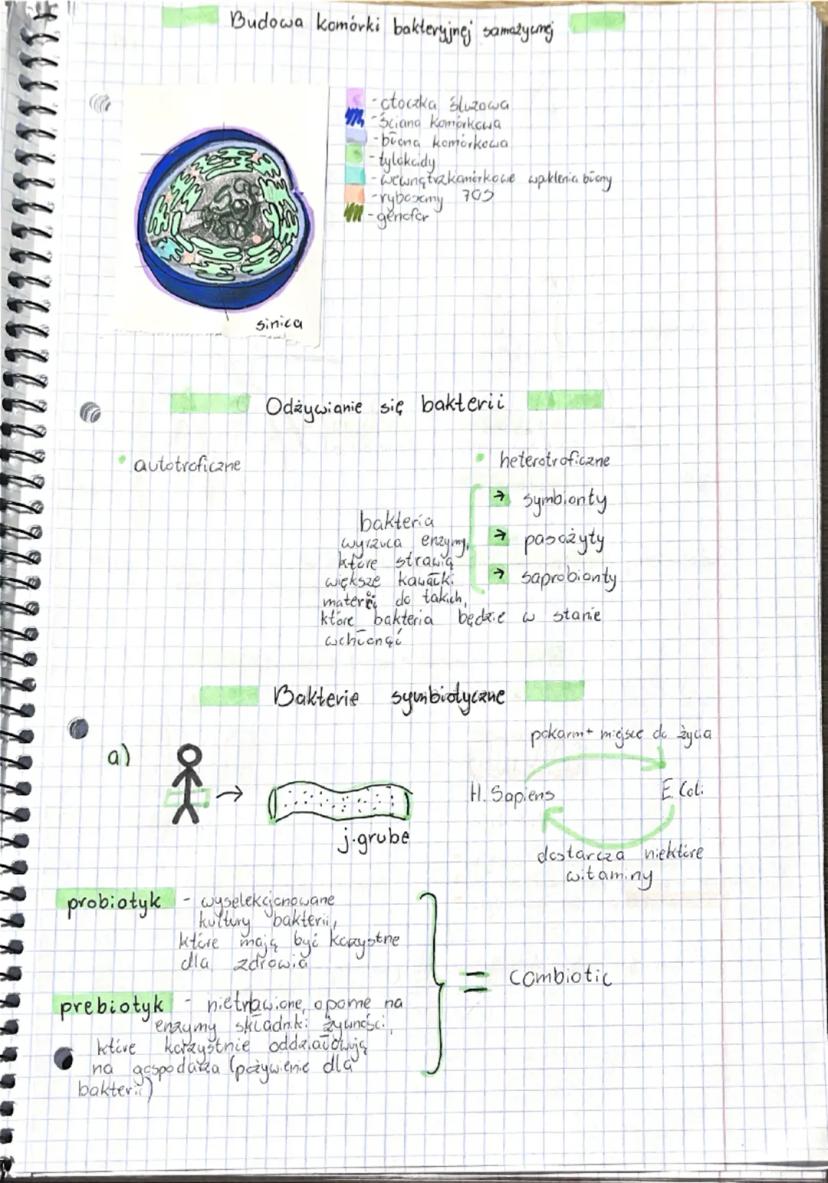 Budowa komórki bakteryjnej samożywnej
- otoczka śluzowa
- ściana komórkowa
- błona komórkowa
- tylakoidy
- wewnątrzkomórkowe wpuklenia błony
- rybosomy 70S
- genofor
sinica
Odżywianie się bakterii
• autotroficzne
• heterotroficzne
→ symbionty
→ pasożyty
→ saprobionty
bakteria
wyrzuca enzymy,
które strawią
większe kawałki
materii do takich,
które bakteria będzie w stanie
wchłonąć
Bakterie symbiotyczne
a)
→
j. grube
pokarm + miejsce do życia
H. Sapiens
E. Coli
dostarcza niektóre
witaminy
probiotyk - wyselekcjonowane
kultury bakterii,
które mają być korzystne
dla zdrowia
prebiotyk - nietrawione, oporne na
enzymy składniki żywności,
które korzystnie oddziałują
na gospodarza (pożywienie dla
bakterii)
= combiotic